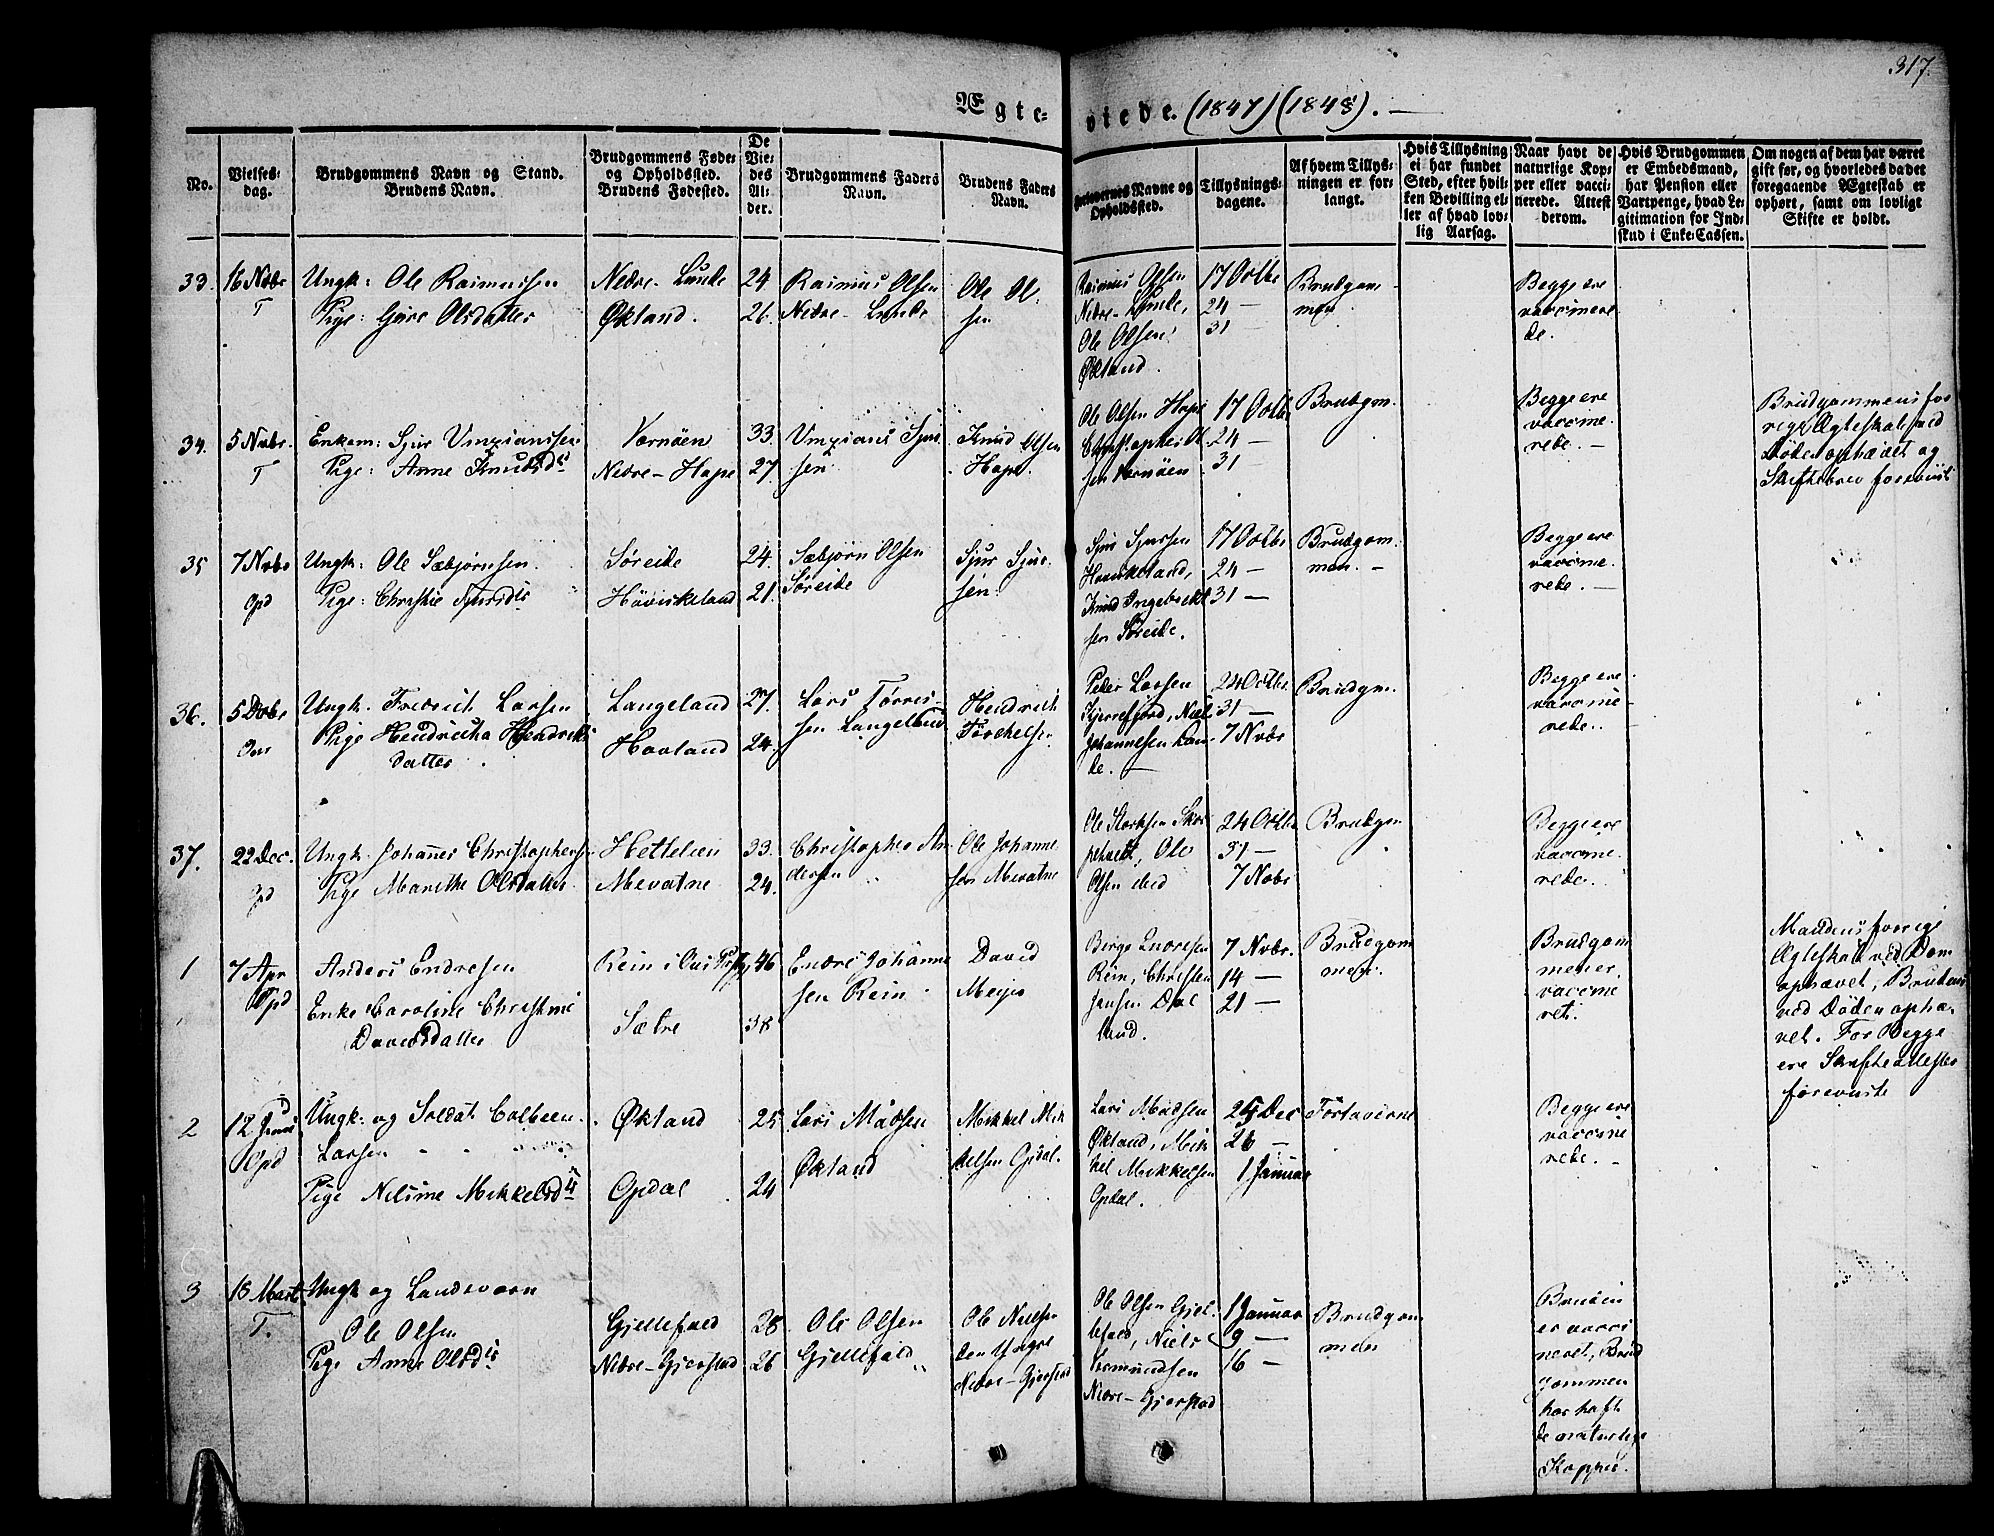 317.
Ægte-viede. (1847) (1848). —
No.
Vielses-
dag.
Brudgommens Navn og Stand.
Brudens Navn.
Brudgommens Føde-
og Opholdssted.
Brudens Fødested.
De
Vie-
des
Al-
der.
Brudgommens Faders
Navn.
Brudens Faders
Navn.
Forlovernes Navne og
Opholdssted.
Tillysnings-
dagene.
Af hvem Tillys-
ningen er for-
langt.
Hvis Tillysning
ei har fundet
Sted, efter hvil-
ken Bevilling el-
ler af hvad lov-
lig Aarsag.
Naar havt de
naturlige Kop-
per eller vacci-
nerede. Attest
derom.
Hvis Brudgommen
er Embedsmand,
har Pension eller
Vartpenge, hvad Le-
gitimation for Ind-
skud i Enke-Cassen.
Om nogen af dem har været
gift før, og hvorledes da det
foregaaende Ægteskab er
ophørt, samt om lovligt
Skifte er holdt.
33.
16 Nvbr
T
Ungk: Ole Rasmussen
Pige: Gure Olsdatter
Nedre-Lunde
Økland.
24
26.
Rasmus Olsen
Nedre-Lunde
Ole Ol-
sen
Rasmus Olsen
Nedre-Lunde,
Ole Olsen
Økland.
17 Octbr
24 —
31
Brudgom-
men.
Begge ere
vaccinere
de.
34.
5 Nvbr.
T
Enkem: Sjur
Pige: Anne Knudsd
Vornøen
Nedre-Hope
33.
27.
Sjur-
sen
Knud Olsen
Hope.
Ole Olsen Hope
Christopher Ol-
sen Vornøen
17 Octbr
24 —
31 —
Brudgom-
Begge ere
vaccine-
rede. —
Brudgommens for
rige Ægteskab ved
Døden ophævet og
Skiftebrev foreviist
35
7 Nvbr
Opd
Ungk: Ole Sæbjørnsen.
Pige: Christie Sjursd
Søreide
24.
21.
Sæbjørn Olsen
Søreide
Sjur Sjur-
sen.
Sjur Sjursen
Knud Ingebrekt
sen Søreide.
17 Octbr
24 —
31 —
Brudgom-
men. —
Begge ere
vaccine-
rede. —
36.
5 Dvbr
Ous
Ungk. Fredrich Larsen
Pige Hendricka Hendriks
datter
Langeland
Hovland
27.
24.
Lars Tørris-
sen Langeland
Hendrich
Torkelsen
Peder Larsen
Kjerrefjord, Niels
Johannesen Lun-
de. —
24 Octbr.
31 —
7 Nvbr
Brudgm.
Begge ere
vaccine-
rede.
37.
22 Dec.
Opd
Ungk. Johannes Christophersen
Pige Marithe Olsdatter
Hettelien
Mevatne
33.
24.
Christopher An-
dersen
Ole Johanne-
sen Mevatne
Olsen ibid
24 Octbr
31 —
7 Nobr
Brudgom
Begge ere
vaccine-
rede.
1
7 Apr
Opd
Anders Endresen
Enke Caroline Christine
Davidsdatter
Rein i Ous Præstg
Sætre
46
38
Endre Johanne
sen Rein.
David
Meyer
Rein, Christen
Jansen Dal
land.
7 Nvbr.
14 —
21 —
Brudgom
men.
Brudgom
men er
vaccine
ret.
Mandens forrige
Ægteskab ved Dom
ophævet, Brudens
ved Døden ophæ-
vet. For Begge
ere Skifteattester
foreviste
2
12 Juni
Opd
Ungk: og Soldat Colbeen
Larsen
Pige Nilsine Mikkelsd
Økland
Opdal
25
24
Lars Madsen
Økland
Mikkel Mik
kelsen Opdal.
Lars Madsen
Økland, Mik
kel Mikkelsen
Opdal.
25 Dec
26 —
1 Januar
Forloverne
Begge ere
vaccine
rede. —
3
18 Marts
T.
Ungk og Landeværn
Ole Olsen
Pige Anne Olsd
Gjellefald
Nedre-Gjerstad
28
26
Ole Olsen
Gjellefald
Ole Nielsen
den Yngre
Nedre-Gjerstad
Ole Olsen Gjel-
lefald, Niels
Nedre-Gjerstad
1 Januar
9 —
16 —
Brudgom
men
Bruden
er vacci
neret, Brud
gommen
har haft
de naturlige
Kopper.